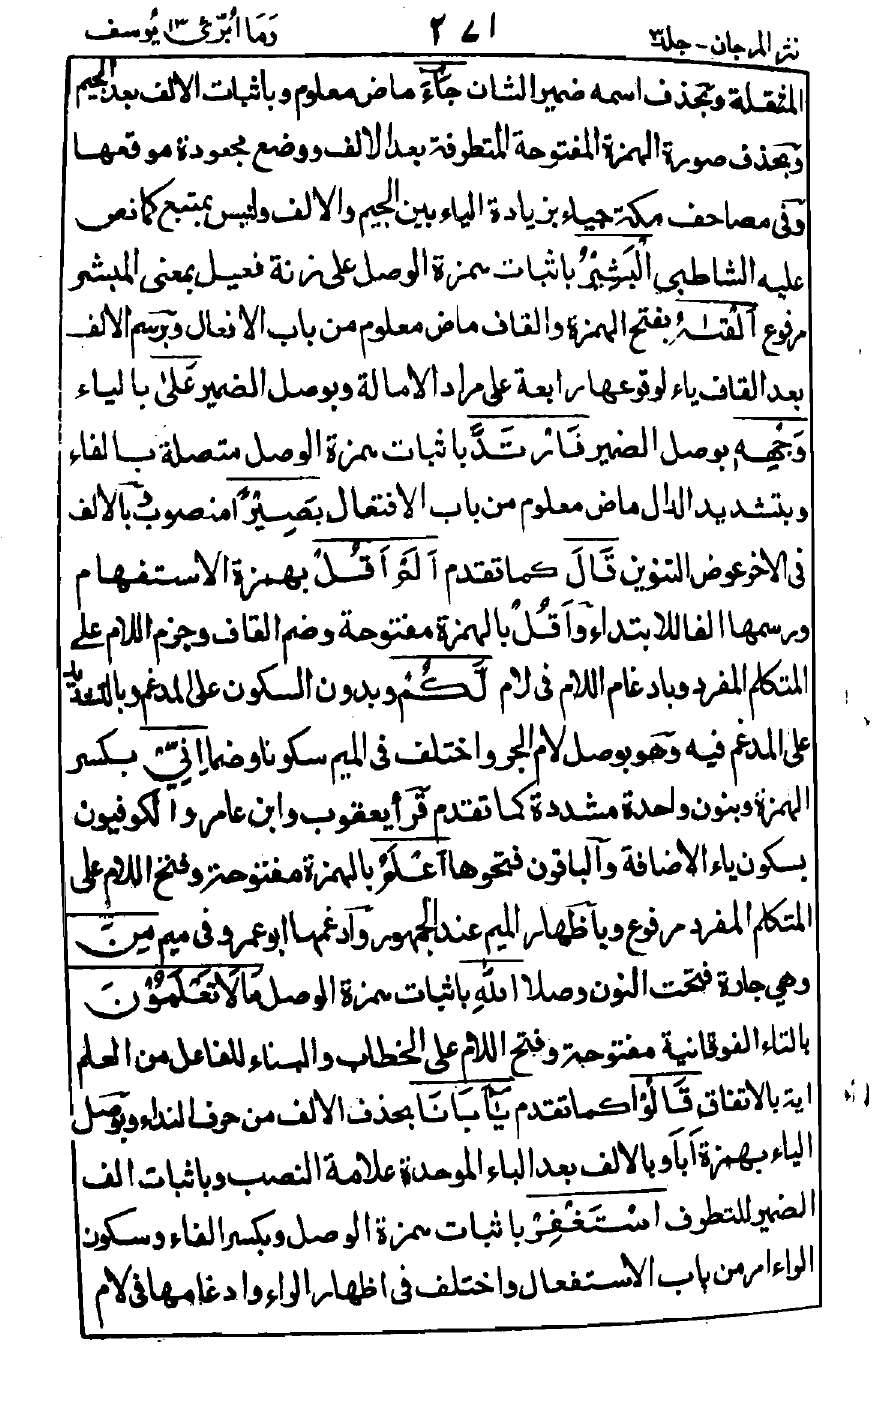 نثر المرجان - جلد ٣ ٢٧١ وَمَا أُبَرِّئُ ١٣ يُوسف
المثقلة وبحذف اسمه ضمير الشان جَاءَ ماض معلوم وباثبات الالف بعد الجيم
وبحذف صورة الهمزة المفتوحة المتطرفة بعد الالف ووضع مجعودة موقعها
وفى مصاحف مكة جياء بزيادة الياء بين الجيم والالف وليس بمتبع كما نص
عليه الشاطبي الْبَشِيْرُ باثبات همزة الوصل على زنة فعيل بمعنى المبشر
مرفوع اَلْقٰىهُ بفتح الهمزة والقاف ماض معلوم من باب الافعال وبرسم الالف
بعد القاف ياء لوقوعها رابعة على مراد الامالة وبوصل الضمير عَلٰى بالياء
وَجْهِهٖ بوصل الضمير فَارْتَدَّ باثبات همزة الوصل متصلة بالفاء
وبتشديد الدال ماض معلوم من باب الافتعال بَصِيْرًا منصوب وبالالف
فى الاخر عوض التنوين قَالَ كما تقدم اَلَمْ اَقُلْ بهمزة الاستفهام
ورسمها الفا للابتداء وَاَقُلْ بالهمزة مفتوحة وضم القاف وجزم اللام على
المتكلم المفرد وبادغام اللام فى لام لَّكُمْ وبدون السكون على المدغم وبالتشديد
على المدغم فيه وَهو بوصل لام الجر واختلف فى الميم سكونا وضما اِنِّيْ بكسر
الهمزة وبنون واحدة مشددة كما تقدم قَرأ يعقوب وابن عامر والكوفيون
بسكون ياء الاضافة والباقون فتحوها اَعْلَمُ بالهمزة مفتوحة وفتح اللام على
المتكلم المفرد مرفوع وباظهار الميم عند الجمهور وَادغمها ابوعمرو فى ميم مِنَ
وهي جارة فتحت النون وصلا اللهِ باثبات همزة الوصل مَا لَا تَعْلَمُوْنَ
بالتاء الفوقانية مفتوحة وفتح اللام على الخطاب والبناء للفاعل من العلم
اية بالاتفاق قَالُوْا كما تقدم يٰاَبَانَا بحذف الالف من حرف النداء وبوصل
الياء بهمزة اَبَا وبالالف بعد الباء الموحدة علامة النصب وباثبات الف
الضمير للتطرف اسْتَغْفِرْ باثبات همزة الوصل وبكسر الفاء وسكون
الراء امر من باب الاستفعال واختلف فى اظهار الراء وادغامها فى لام